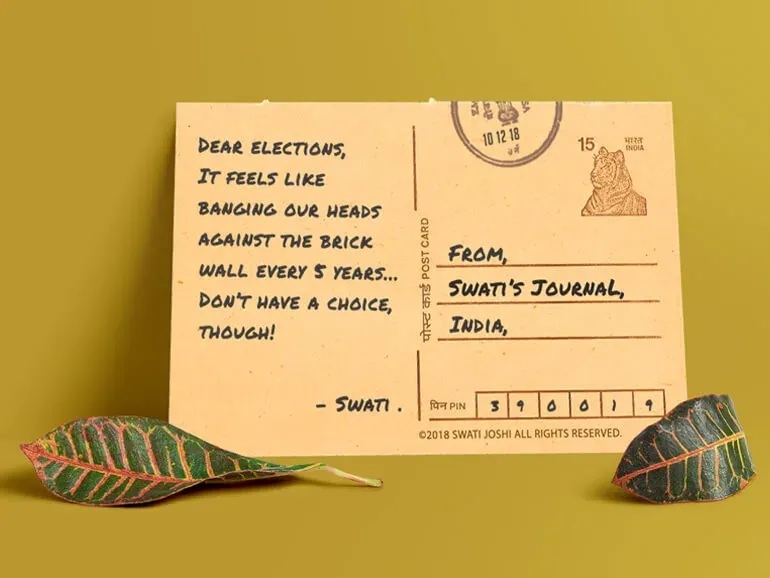 DEAR ELECTIONS,
IT FEELS LIKE
BANGING OUR HEADS
AGAINST THE BRICK
WALL EVERY 5 YEARS...
DON'T HAVE A CHOICE,
THOUGH!
- SWATI .
पोस्ट कार्ड POST CARD
10 12 18
15 भारत
INDIA
FROM,
SWATI'S JOURNAL,
INDIA,
पिन PIN 3 9 0 0 1 9
©2018 SWATI JOSHI ALL RIGHTS RESERVED.